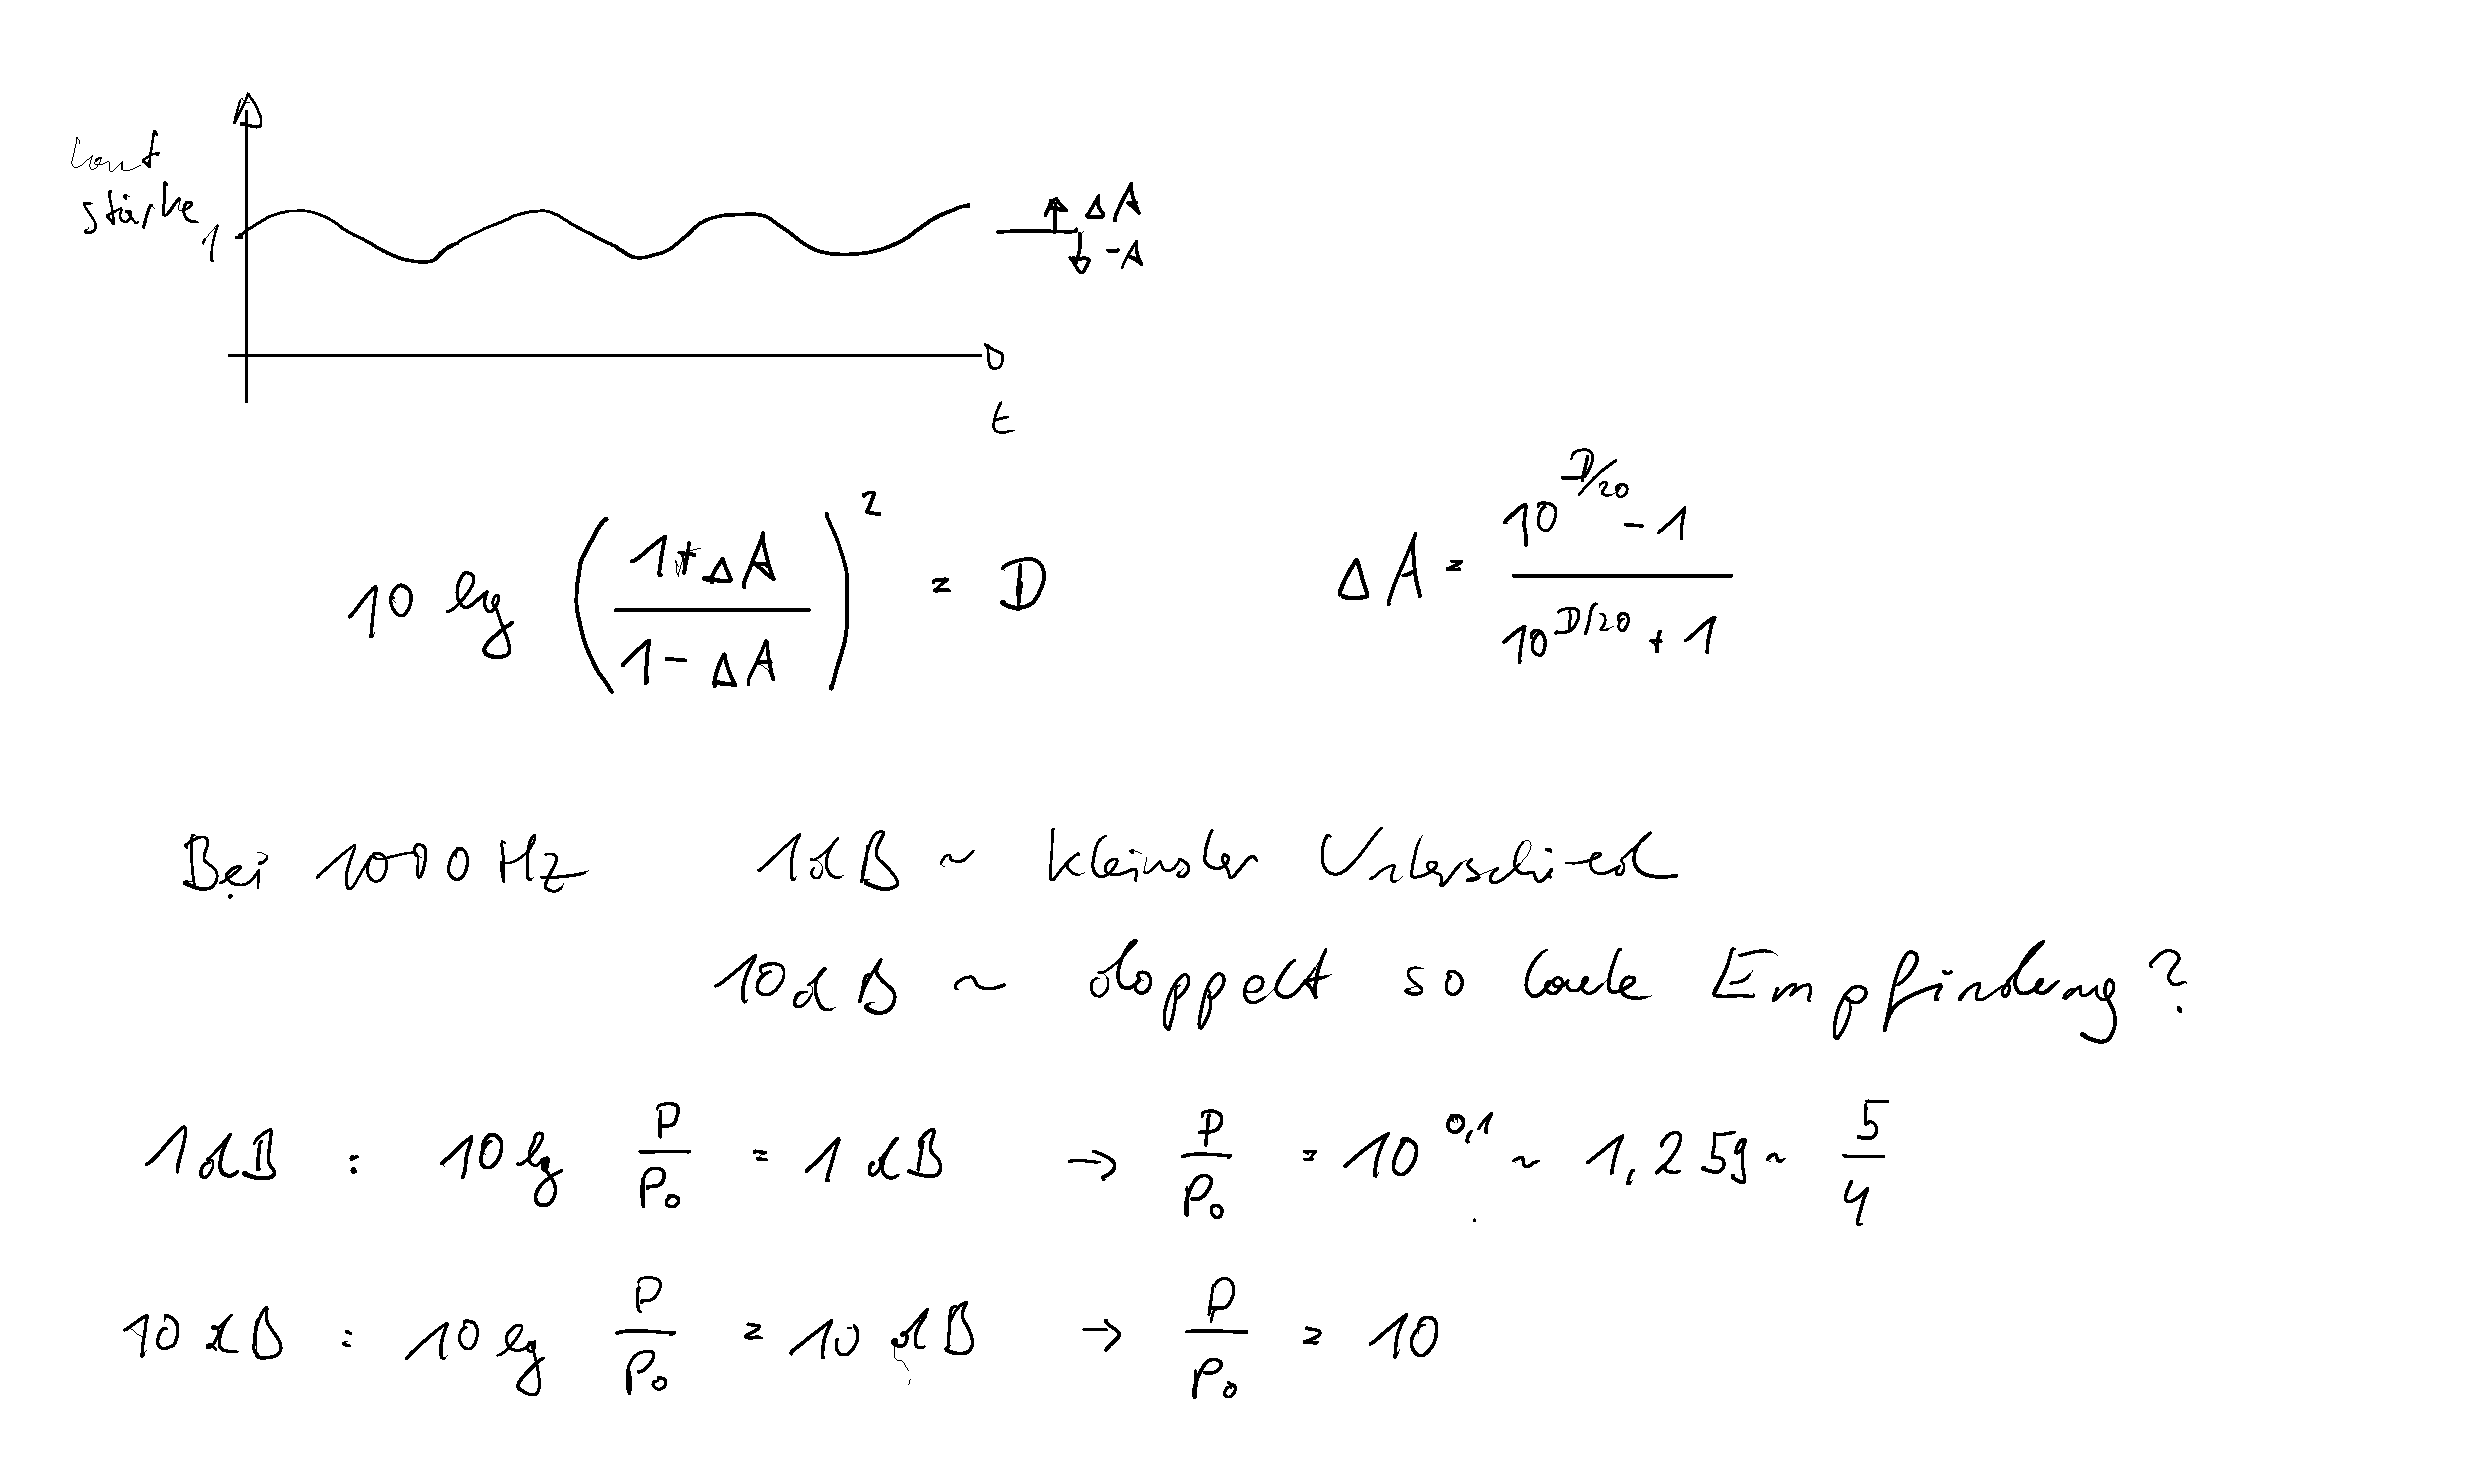 Laut
stärke
1
ΔA
-A
t
10 lg ((1+ΔA)/(1-ΔA))² = D
ΔA = (10^(D/20) - 1)/(10^(D/20) + 1)
Bei 1000 Hz 1dB ~ kleinster Unterschied
10dB ~ doppelt so laute Empfindung?
1dB : 10 lg P/P₀ = 1 dB → P/P₀ = 10^0,1 ~ 1,259 ~ 5/4
10 dB : 10 lg P/P₀ = 10 dB → P/P₀ = 10